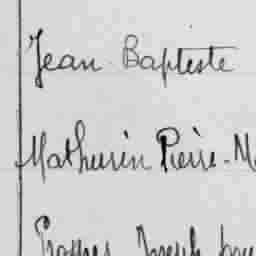 Jean Baptiste
Mathurin Pierre-M
Prosper Joseph